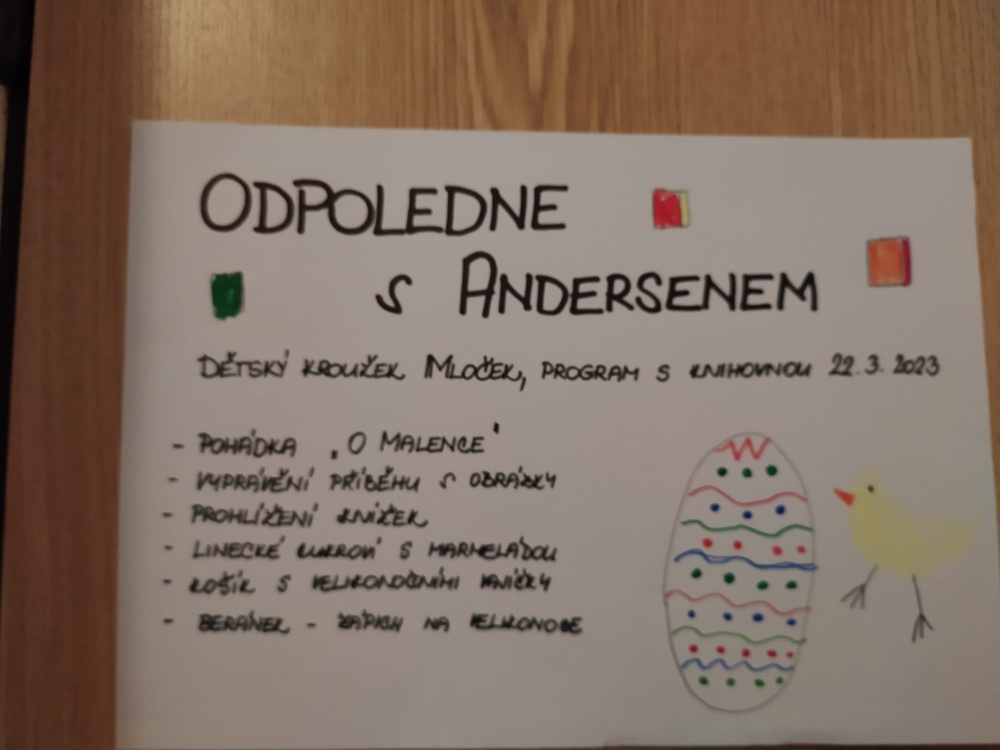 ODPOLEDNE
S ANDERSENEM
DĚTSKÝ KROUŽEK MLOČEK, PROGRAM S KNIHOVNOU 22.3.2023
- POHÁDKA „O MALENCE"
- VYPRÁVĚNÍ PŘÍBĚHU S OBRÁZKY
- PROHLÍŽENÍ KNÍŽEK
- LINECKÉ CUKROVÍ S MARMELÁDOU
- KOŠÍK S VELIKONOČNÍMI VAJÍČKY
- BERÁNEK - ZÁPICH NA VELIKONOCE